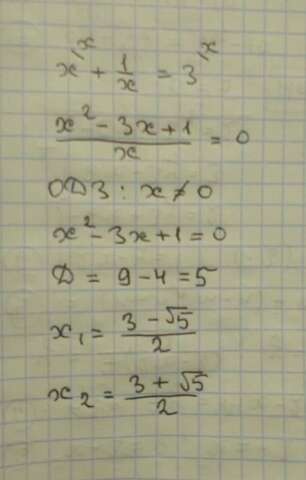 x^{\x} + 1/x = 3^{\x}
(x² - 3x + 1)/x = 0
ОДЗ: x ≠ 0
x² - 3x + 1 = 0
Д = 9 - 4 = 5
x₁ = (3 - √5)/2
x₂ = (3 + √5)/2